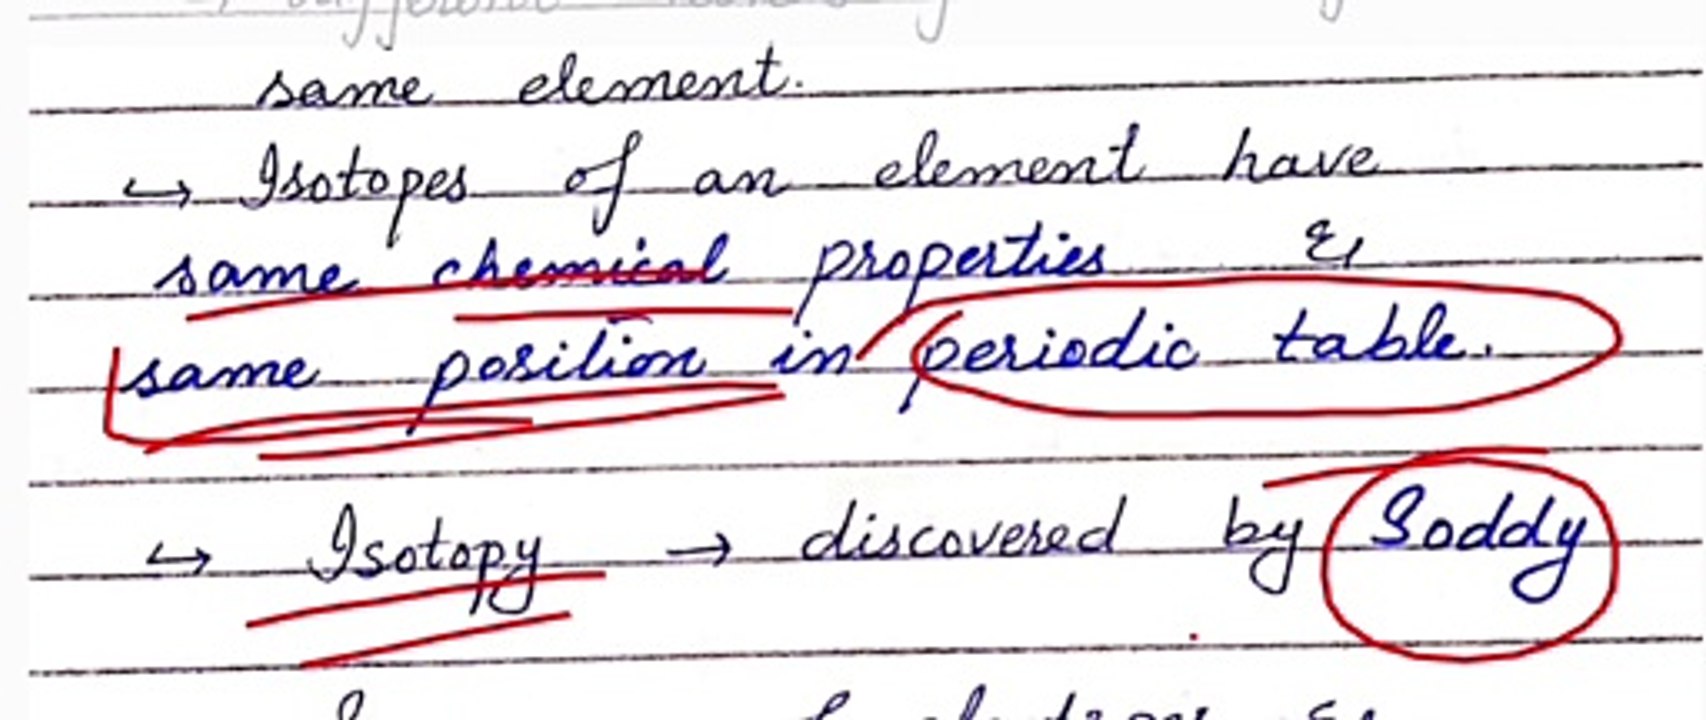 same element.
↪ Isotopes of an element have
same chemical properties &
same position in periodic table.
↪ Isotopy → discovered by Soddy